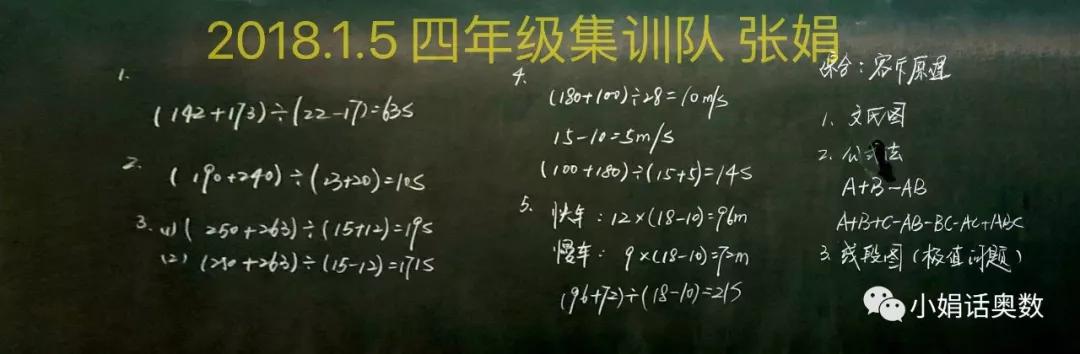 2018.1.5 四年级集训队 张娟
1.
(142+173)÷(22-17)=63s
2.
(190+240)÷(23+20)=10s
3. (1) (250+263)÷(15+12)=19s
(2) (250+263)÷(15-12)=171s
4.
(180+100)÷28=10m/s
15-10=5m/s
(100+180)÷(15+5)=14s
5. 快车：12×(18-10)=96m
慢车：9×(18-10)=72m
(96+72)÷(18-10)=21s
综合：容斥原理
1. 文氏图
2. 公式法
A+B-AB
A+B+C-AB-BC-AC+ABC
3. 线段图（极值问题）
小娟话奥数